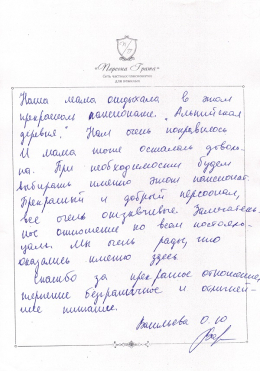 «Первая Грань»
Наша мама отдыхала в этом
прекрасном пансионате „Альпийская
деревня." Нам очень понравилось
И мама тоже осталась доволь-
на. При необходимости будем
выбирать именно этот пансионат.
Прекрасный и добрый персонал,
все очень отзывчивые. Замечатель-
ное отношение ко всем постояль-
цам. Мы очень рады, что
оказались именно здесь.
Спасибо за прекрасное отношение,
терпение безграничное и
питание.
Васильева О. Ю